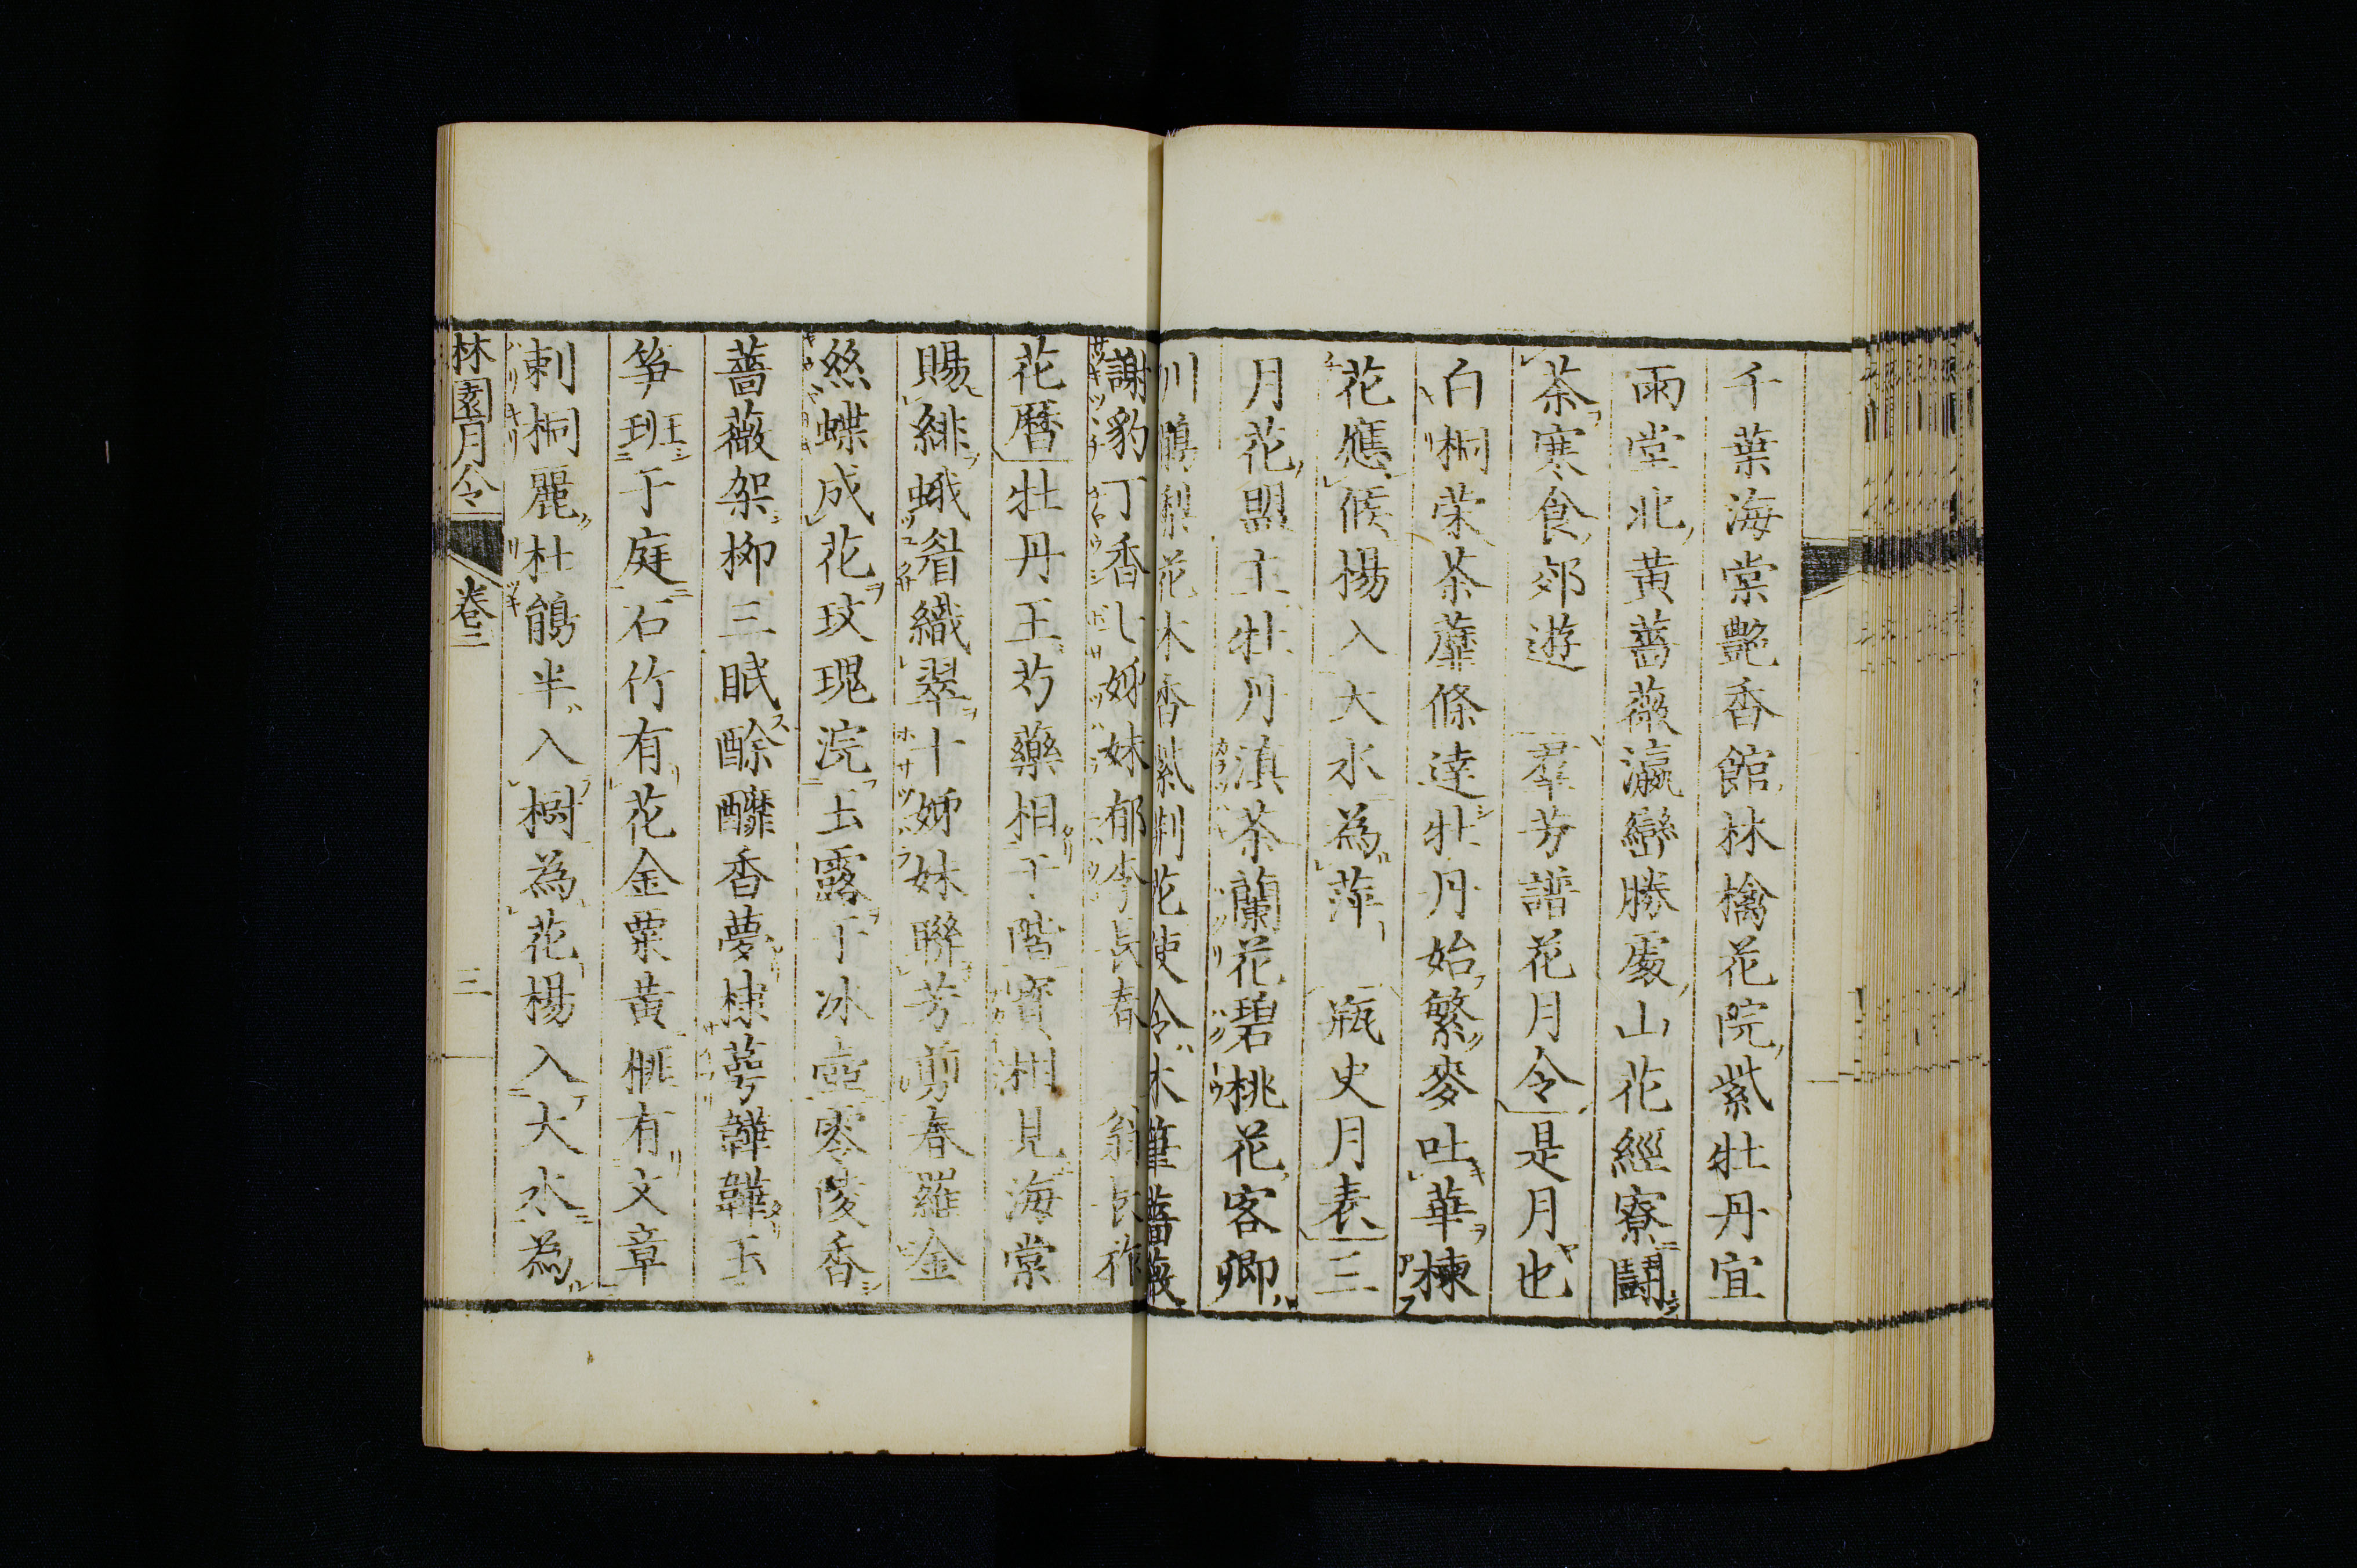 千葉海棠艶香館林檎花院紫牡丹宜
雨堂北黄薔薇瀛巒勝處山花經寮闘
茶寒食郊遊 羣芳譜花月令是月也
白桐榮茶蘼條達牡丹始繁麥吐華楝
花應候楊入大水為萍 瓶史月表三
月花盟主牡丹滇茶蘭花碧桃花客卿
川鵑梨花木香紫荆花使令木筆薔薇
謝豹丁香七姊妹郁李長春 翁長祚
花暦牡丹王芍藥相于階寳相見海棠
賜緋蛾眉織翠十姊妹聯芳剪春羅金
絲蝶成花玫瑰浣玉露于冰壺零陵香
薔薇架柳三眠酴醾香夢棣萼韡韡玉
笋班于庭石竹有花金粟黄榧有文章
刺桐麗杜鵑半入樹為花楊入大水為
林園月令 卷三 三